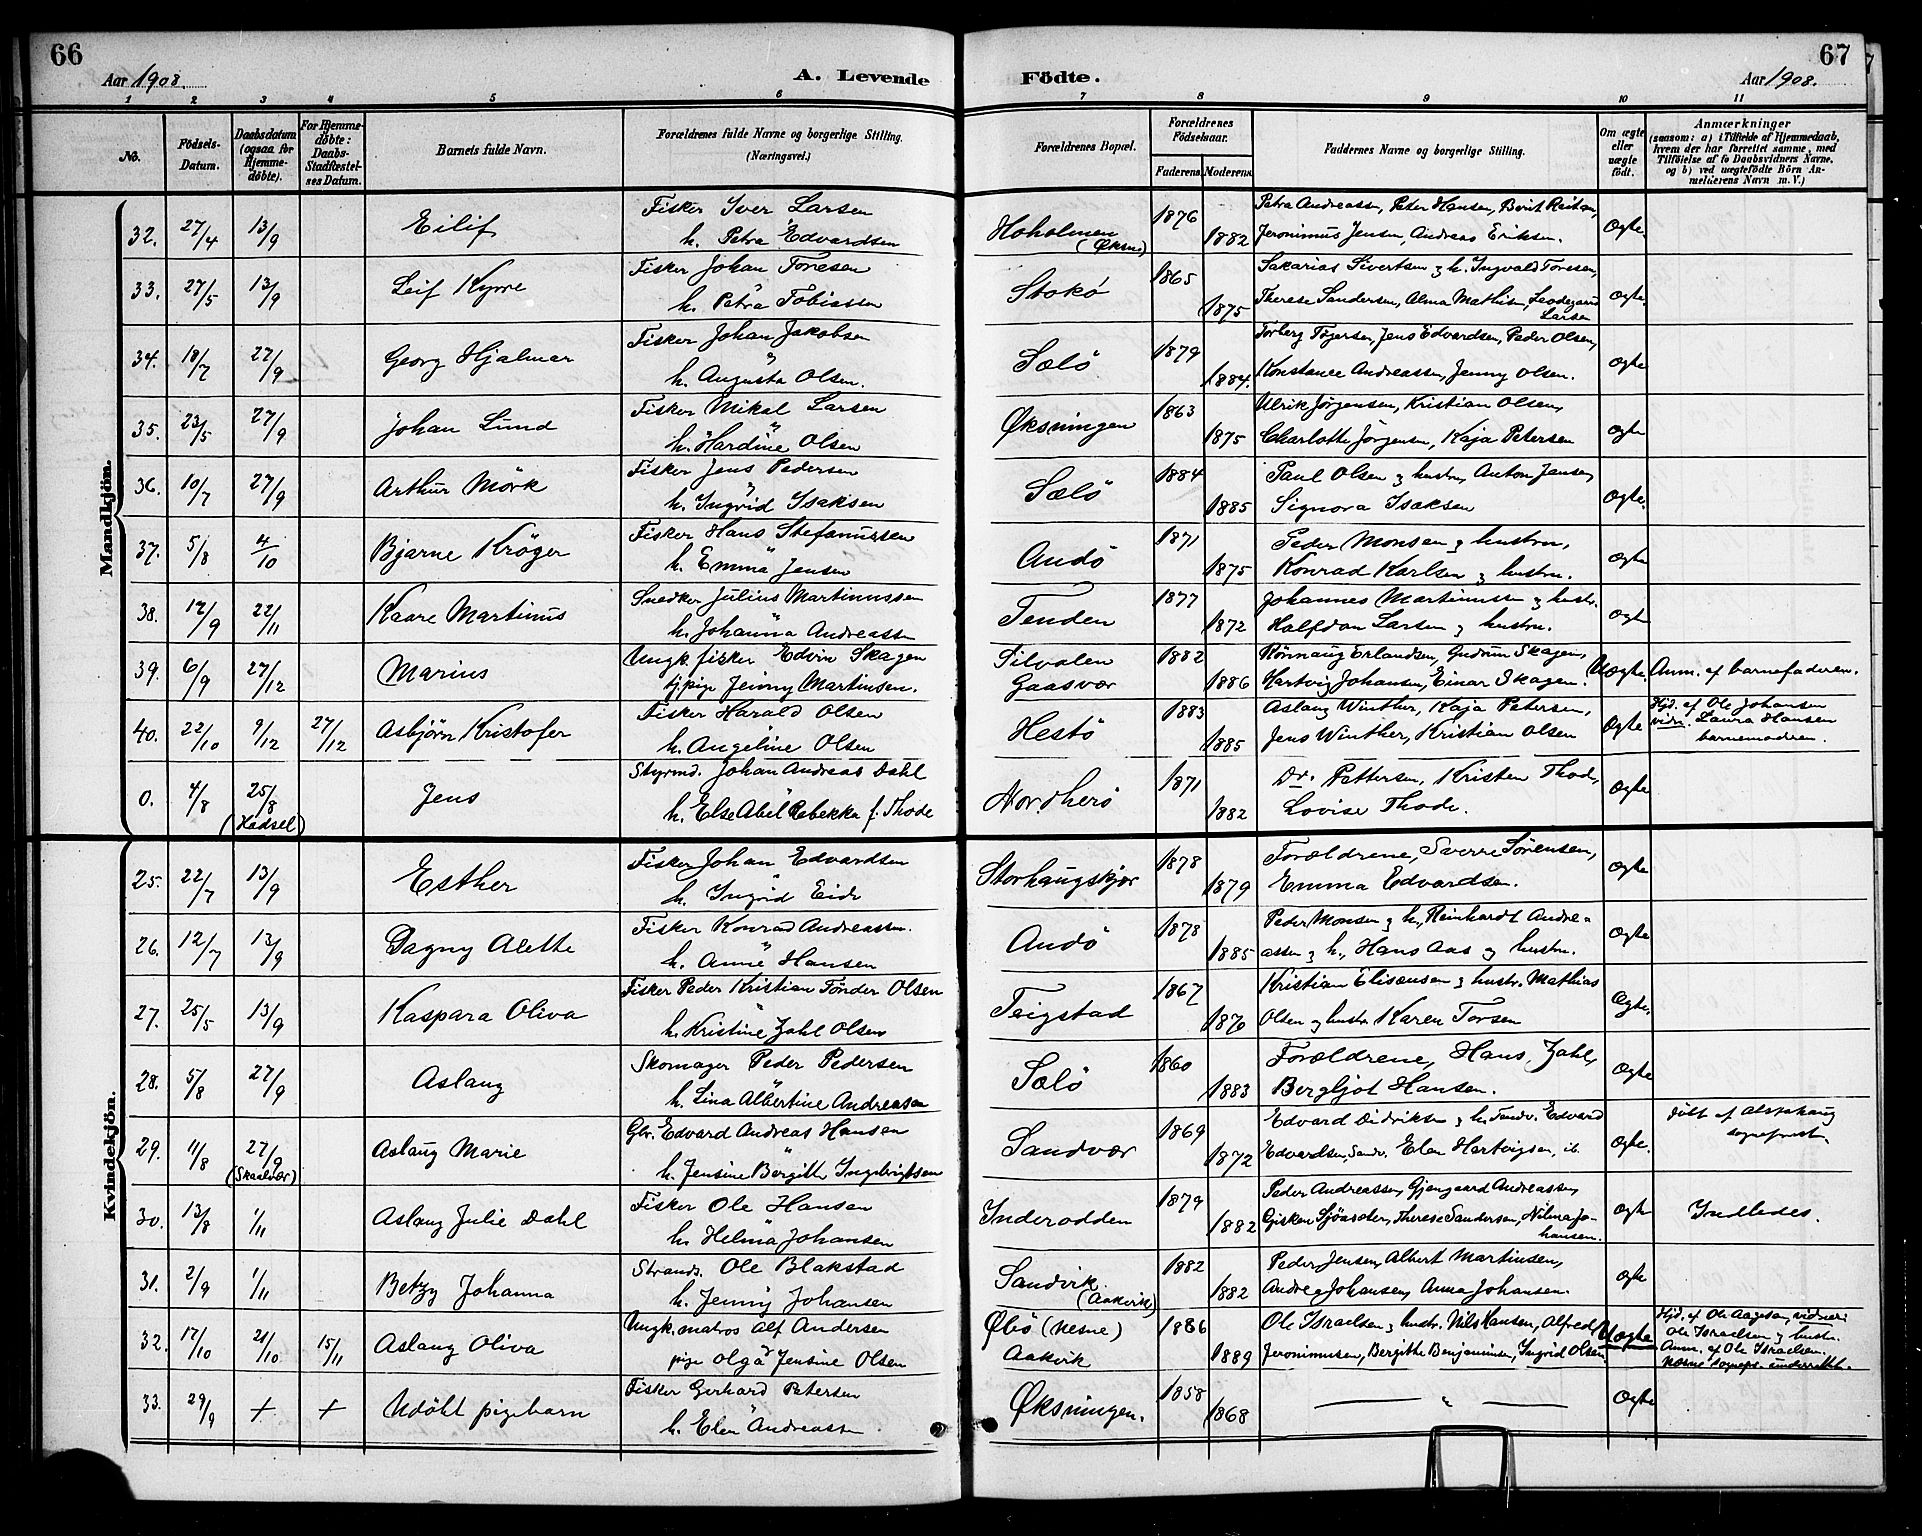 66
Aar 1908.
A. Levende
Födte.
67
Aar 1908.
1 2 3 4 5 6 7 8 9 10 11
No.
Födsels-Datum.
Daabsdatum (ogsaa for Hjemme-döbte).
For Hjemme-döbte: Daabs-Stadfæstel-ses Datum.
Barnets fulde Navn.
Forældrenes fulde Navne og borgerlige Stilling.
(Næringsvei.)
Forældrenes Bopæl.
Forældrenes Födselsaar.
Faderens. Moderens.
Faddernes Navne og borgerlige Stilling.
Om ægte eller uægte födt.
Anmærkninger
(saasom: a) i Tilfælde af Hjemmedaab, hvem der har forrettet samme, med Tilföielse af to Daabsvidners Navne, og b) ved uægtefödte Börn An-melderens Navn m. V.)
Mandkjön.
32. 27/4 13/9 Eilif Fisker Iver Larsen Hoholmen 1876 Petra Andreassn, Peter Hansen, Berit Reitan,
h. Petra Edvardsen (Øksn) 1882 Jeronimus Jensen, Andreas Eriksen. Ægte.
33. 27/5 13/9 Leif Kyrre Fisker Johan Toresen Stokö 1865 Sakarias Sivertsen og h. Ingvald Toresen,
h. Petra Tobiassen 1875 Therese Sandersen, Alma Mathisn, Leodegaard Larsen Ægte.
34. 18/7 27/9 Georg Hjalmar Fisker Johan Jakobsen Sælö 1879 Torberg Tögersen, Jens Edvardsen, Peder Olsen,
h. Augusta Olsen. 1884. Konstance Andreassen, Jenny Olsen. Ægte
35. 23/5 27/9 Johan Lund Fisker Mikal Larsen Øksningen 1863 Ulrik Jørgensen, Kristian Olsen,
h. Hardine Olsen 1875 Charlotte Jørgensen, Kaja Petersen Ægte
36. 10/7 27/9 Arthur Mörk Fisker Jens Pedersen Sælö 1884 Paul Olsen og hustru, Anton Jensen,
h. Ingrid Isaksen 1885 Signora Isaksen Ægte.
37. 5/8 4/10 Bjarne Kröger Fisker Hans Stefanussen Andö 1871 Peder Monsen og hustru,
h. Emma Jensen 1875 Konrad Karlsen og hustru. Ægte
38. 17/9 22/11 Kaare Martinus Snedker Julius Martinussen Tenden 1877 Johannes Martinussen og hustr.
h. Johanna Andreassen 1872 Halfdan Larsen og hustru. Ægte
39. 6/9 27/12 Marius Ungk. fisker Edvin Skagen Silvalen 1882 Rönnaug Erlandsen, Gudrun Skagen,
tjpige Jenny Martinsen. Gaasvær 1886 Hartvig Johansen, Einar Skagen. Uægte Anm. af barnefaderen.
40. 22/10 9/12 27/12 Asbjörn Kristofer Fisker Harald Olsen Hestö 1883 Aslaug Winther, Kaja Petersen,
h. Angeline Olsen 1885 Jens Winther, Kristian Olsen Ægte Hjd. af Ole Johansen vidn. Laura Hansen barnemoderen.
0. 4/8 25/8 (Hadsel) Jens Styrmd. Johan Andreas Dahl Nordherö 1871 Dr. Pettersen, Kristen Thode,
h. Else Abel Rebekka f. Thode 1882 Lovise Thode. Ægte
Kvindekjön.
25. 22/7 13/9 Esther Fisker Johan Edvardsen Storhaugskjær 1878 Forældrene, Sverre Sörensen,
h. Ingrid Eide 1879 Emma Edvardsen. Ægte
26. 12/7 13/9 Dagny Alette Fisker Konrad Andreassen. Andö 1878 Peder Monsen og h., Reinhardt Andre-
h. Anne Hansen 1885 assen og h., Hans Aas og hustru. Ægte
27. 25/5 13/9 Kaspara Oliva Fisker Peder Kristian Tönder Olsen Teigstad 1867 Kristian Elisensen og hustr. Mathias
h. Kristine Zahl Olsen 1870 Olsen og hustr. Karen Torsen Ægte.
28. 5/8 27/9 Aslaug Skomager Peder Pedersen Sælö 1860 Forældrene, Hans Zahl,
h. Lina Albertine Andreasen 1883 Bergljot Hansen. Ægte
29. 11/8 27/9 (Skaalvær) Aslaug Marie Gbr. Edvard Andreas Hansen Sandvær 1869 Edvard Didriksen og h. Sandv. Edvard
h. Jensine Bergitte Ingebrigtsen 1872 Edvardsen, Sandv. Elen Hartvigsen, ib. Ægte. Døbt af Alstahaug sogneprest.
30. 13/8 1/11 Aslaug Julie Dahl Fisker Ole Hansen Inderodden 1879 Peder Andreassen, Gjengaard Andreassen,
h. Helma Johansen 1882 Gisken Sjöasæter, Therese Sandersen, Nilma Jo-hansen. Ægte Indledes.
31. 2/9 1/11 Betzy Johanna Strands. Ole Blakstad Sandvik 1882 Peder Jensen, Albert Martinsen,
h. Jenny Johansen (Aakvik) 1882 Andrea Johansen, Anna Johansen. Ægte
32. 17/10 21/10 15/11 Aslaug Oliva Ungk. matros Alf Andersen Øbö (Nesne) 1886 Ole Israelsen og hustr. Nils Hansen, Alfred
pige Olga Jensine Olsen Aakvik 1889 Jeronimusen, Bergitte Benjaminsen, Ingrid Olsen Uægte Hjd. af Ole Aagesen, vidner: Ole Israelsen og hustr. Anm. af Ole Israelsen. Nesne sognepr. underrettet.
33. 29/9 + + Udöbt pigebarn Fisker Gerhard Petersen Øksningen. 1858 — " —
h. Elen Andreassen 1868 Ægte